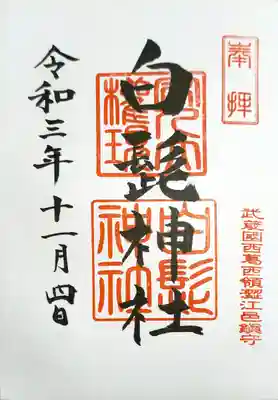 奉拝
武蔵國西葛西領澀江邑鎮守
白髭神社
白髭
神社
令和三年十一月四日